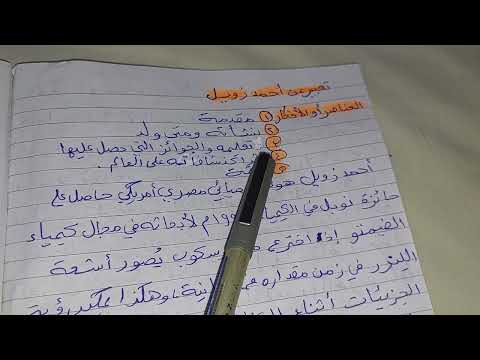 تعبير عن أحمد زويل
العناصر أو الأفكار ① مقدمة
② نشأته ومتى ولد
③ تعليمه والجوائز التي حصل عليها
اكتشافاته على العالم.
أحمد زويل هو كيميائي مصري أمريكي حاصل على
جائزة نوبل في الكيمياء لأبحاثه في مجال كيمياء
الفيمتو إذ اخترع يصور أشعة
الليزر في زمن مقداره وهكذا يمكن رؤية
الجزيئات أثناء